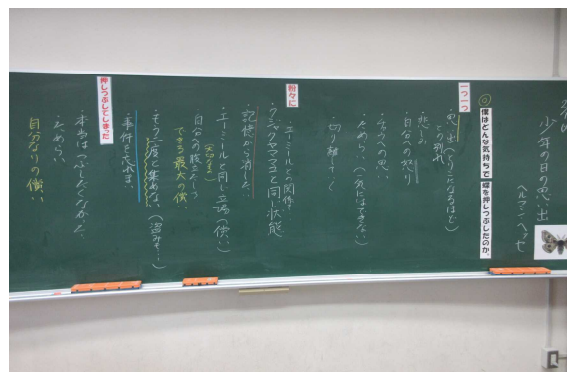 少年の日の思い出
ヘルマン・ヘッセ
◎
僕はどんな気持ちで
蝶を押しつぶしたのか。
一つ一つ
思い出（とりこになるほど）
との別れ
悲しみ
自分への怒り
チョウへの思い
ためらい（一気にはできない）
切り離していく
粉々に
・エーミールとの関係
・クジャクヤママユと同じ状態
・記憶から消したい
・エーミールと同じ立場へ（償い）
自分への
できる最大の償
・もう二度と集めない（盗みも…）
押しつぶしてしまった
・事件を忘れたい
・本当はつぶしたくなかった
自分なりの償い